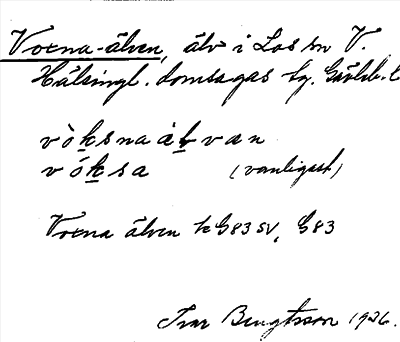 Voxna-älven, älv i Los sn V.
Hälsingl. domsagas tg. Gävleb. l
vòksnaàlvan
vóksa (vanligast)
Voxna älven k G83 SV, G83
Ivar Bengtsson 1926.